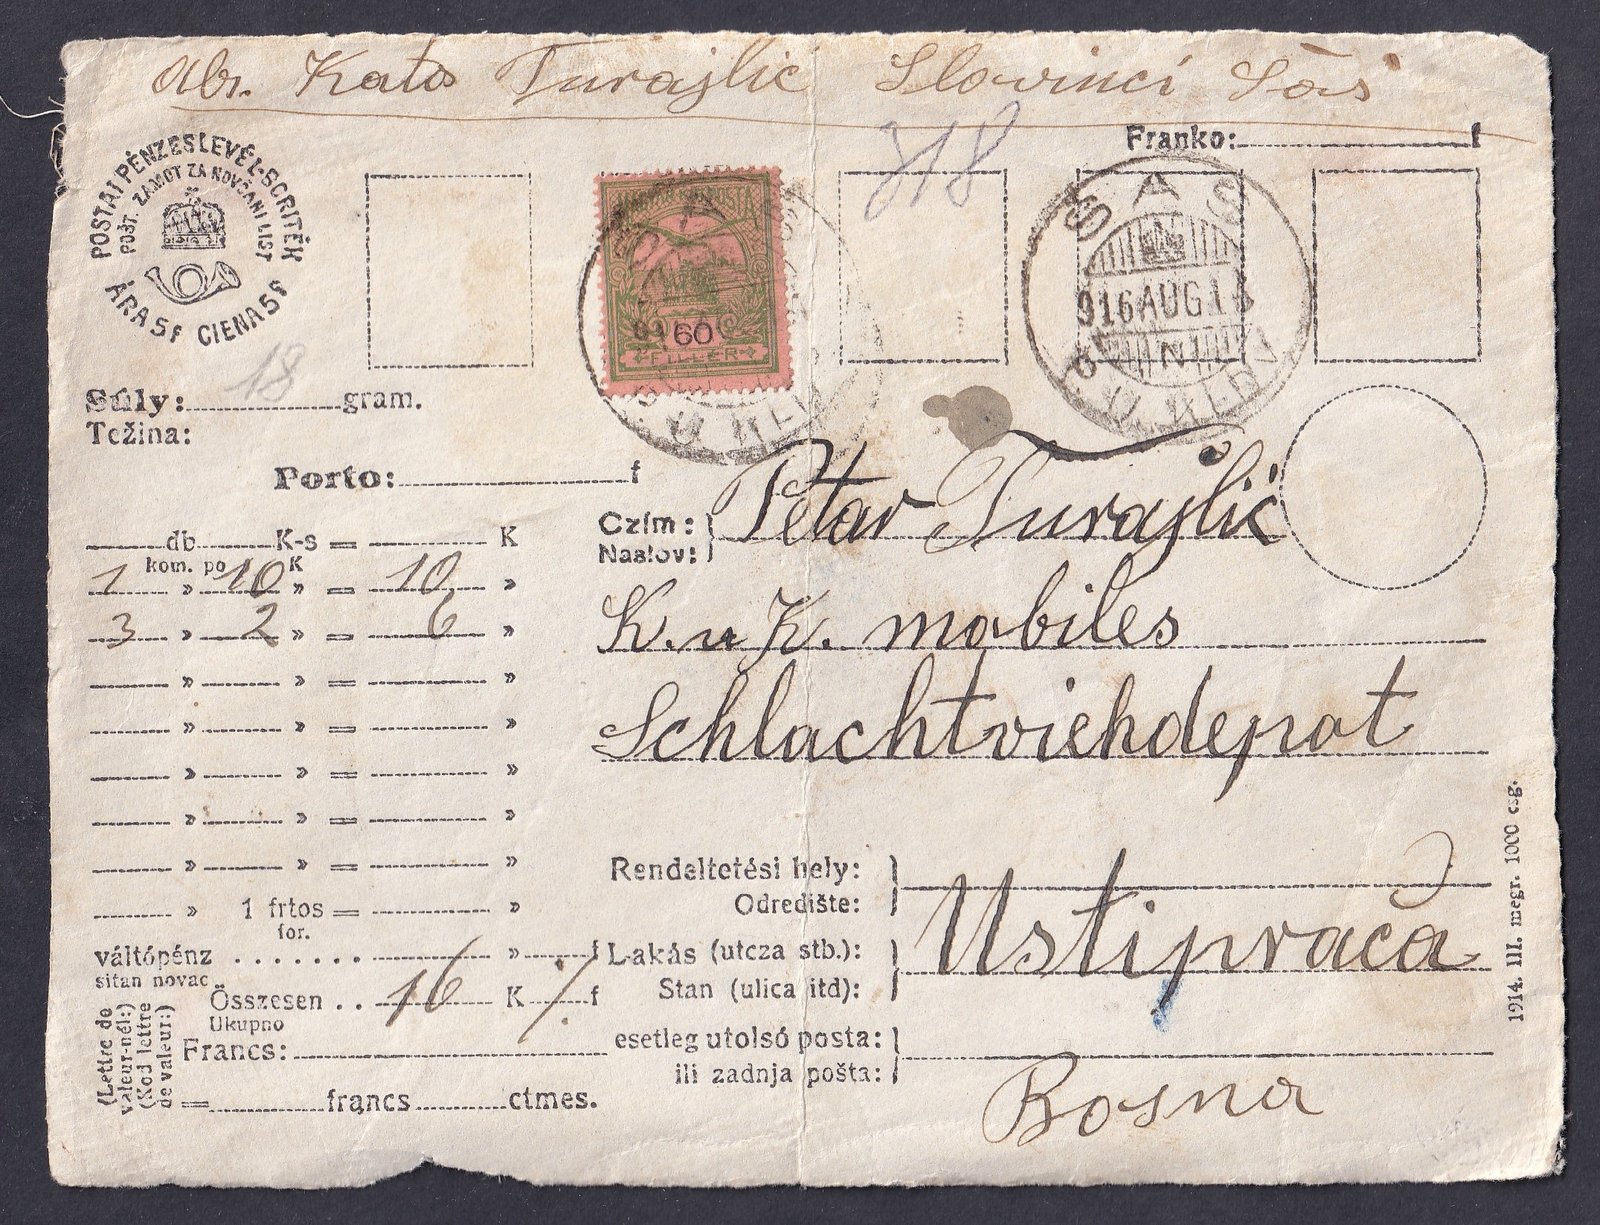 Abs. Kata Turajlić Slovinci Sás
Franko: f
318
POSTAI PÉNZESLEVÉL-BORITÉK
POŠT. ZAMOT ZA NOVČANI LIST
ÁRA 5 f CIENA 5 f
MAGYAR KIR. POSTA
60
FILLÉR
SAS
916 AUG 1
Súly: 18 gram.
Težina:
Porto: f
db K-s = K
kom. po K
1 » 10 » = 10 »
3 » 2 » = 6 »
» » = »
» » = »
» » = »
» » = »
» » = »
» 1 frtos = »
for.
váltópénz ....... » f
sitan novac
Összesen .. 16 K /. f
Ukupno
(Lettre de
valeur-nél:)
(Kod lettre
de valeur:)
Francs:
= francs ctmes.
Czím:
Naslov:
Petar Turajlić
K. u K. mobiles
Schlachtviehdepot
Rendeltetési hely:
Odredište:
Lakás (utcza stb.):
Stan (ulica itd):
Ustiprača
esetleg utolsó posta:
ili zadnja pošta:
Bosna
1914. III. megr. 1000 csg.